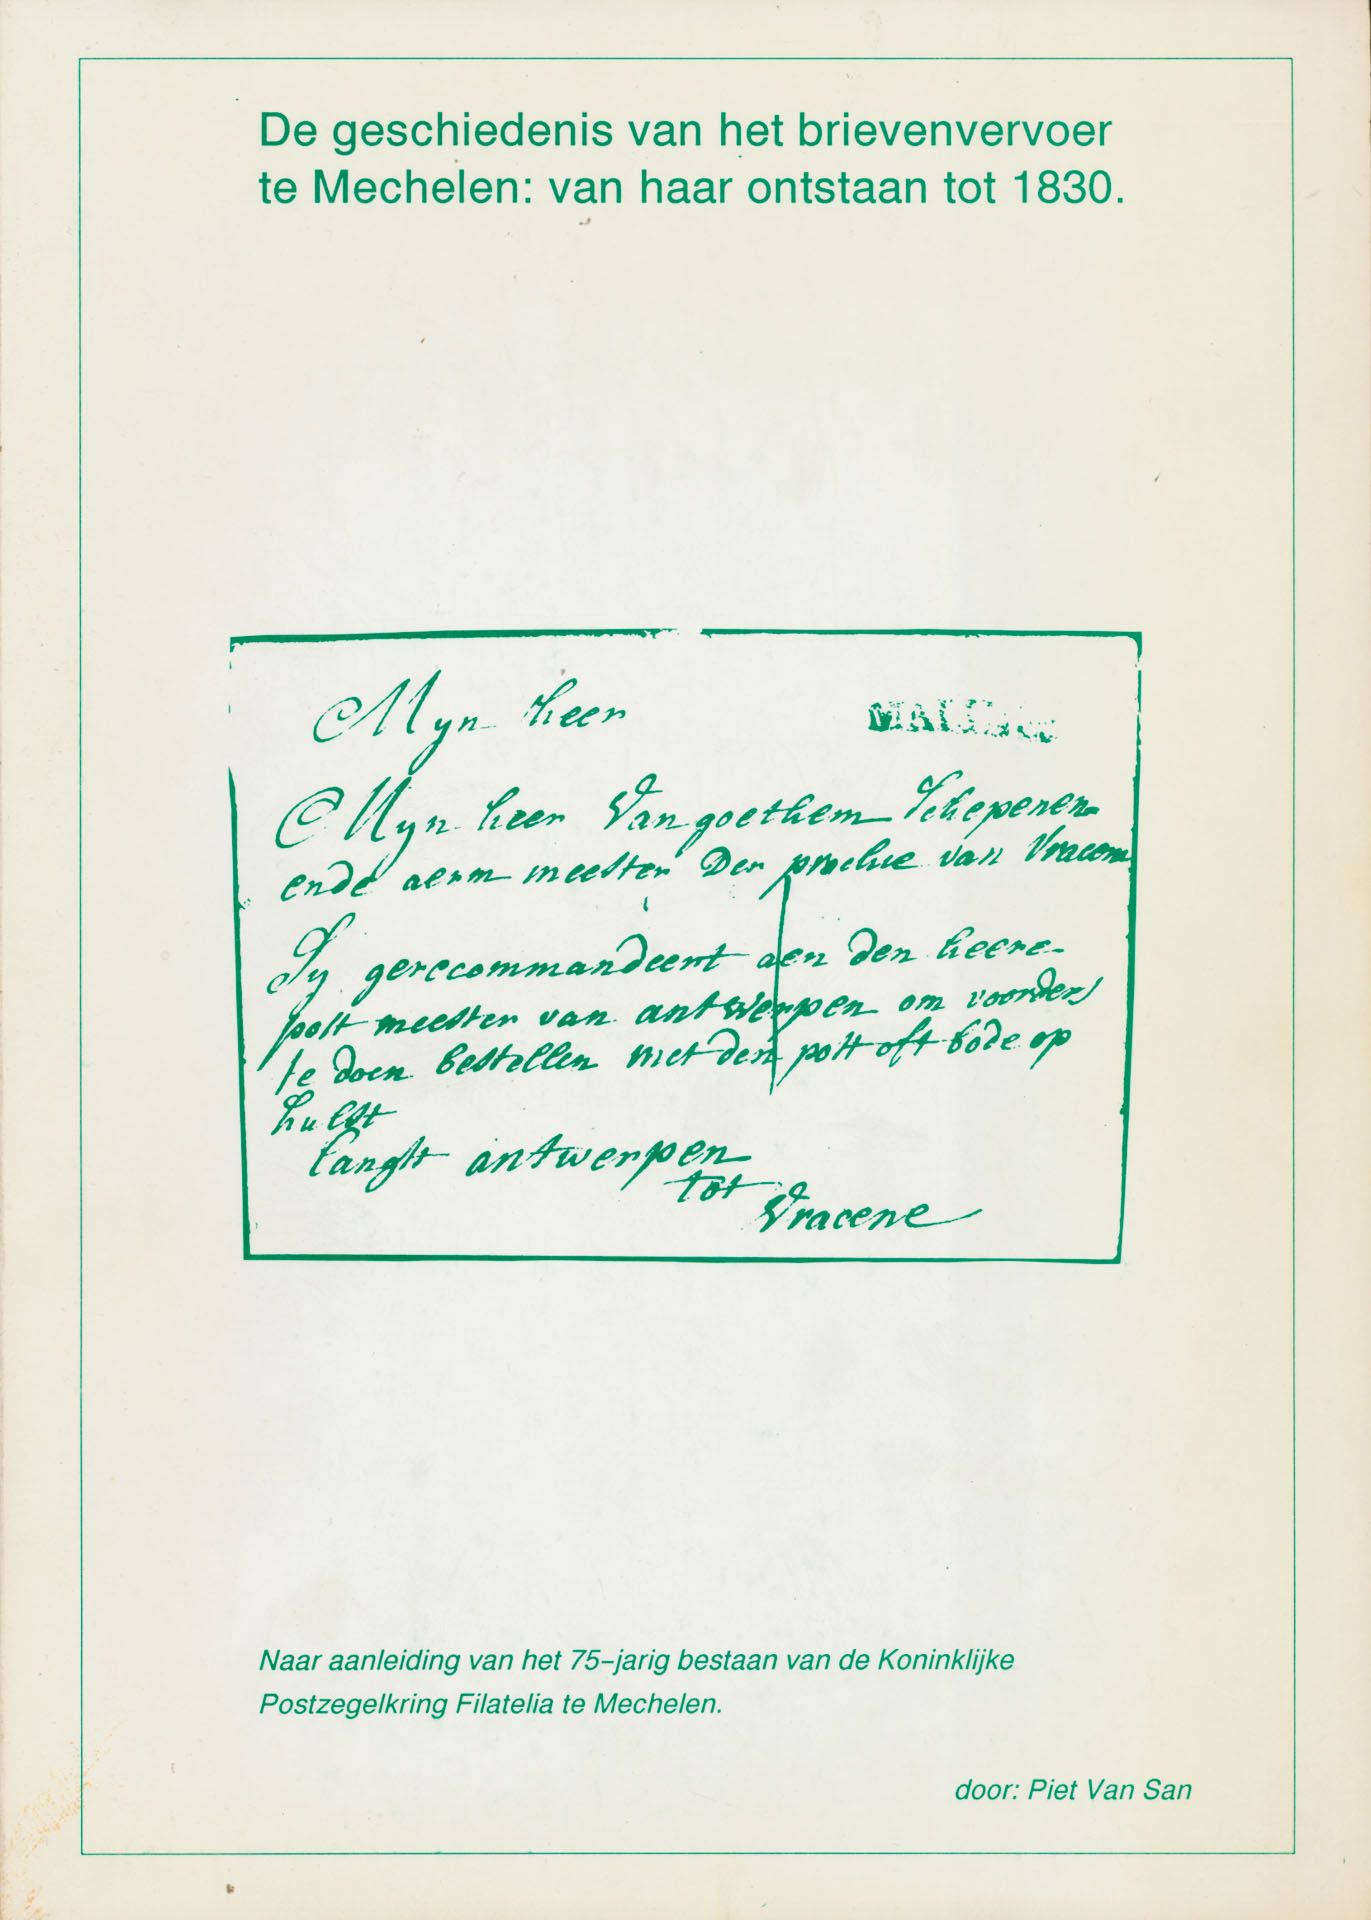 De geschiedenis van het brievenvervoer
te Mechelen: van haar ontstaan tot 1830.
Myn heer
Myn heer Van goethem Schepenen
ende aerm meester Der prochie van Vracene
Sy gerecommandeert aen den heere
post meester van antwerpen om voorders
te doen bestellen met den post oft bode op
hulst
langst antwerpen
tot
Vracene
Naar aanleiding van het 75-jarig bestaan van de Koninklijke
Postzegelkring Filatelia te Mechelen.
door: Piet Van San